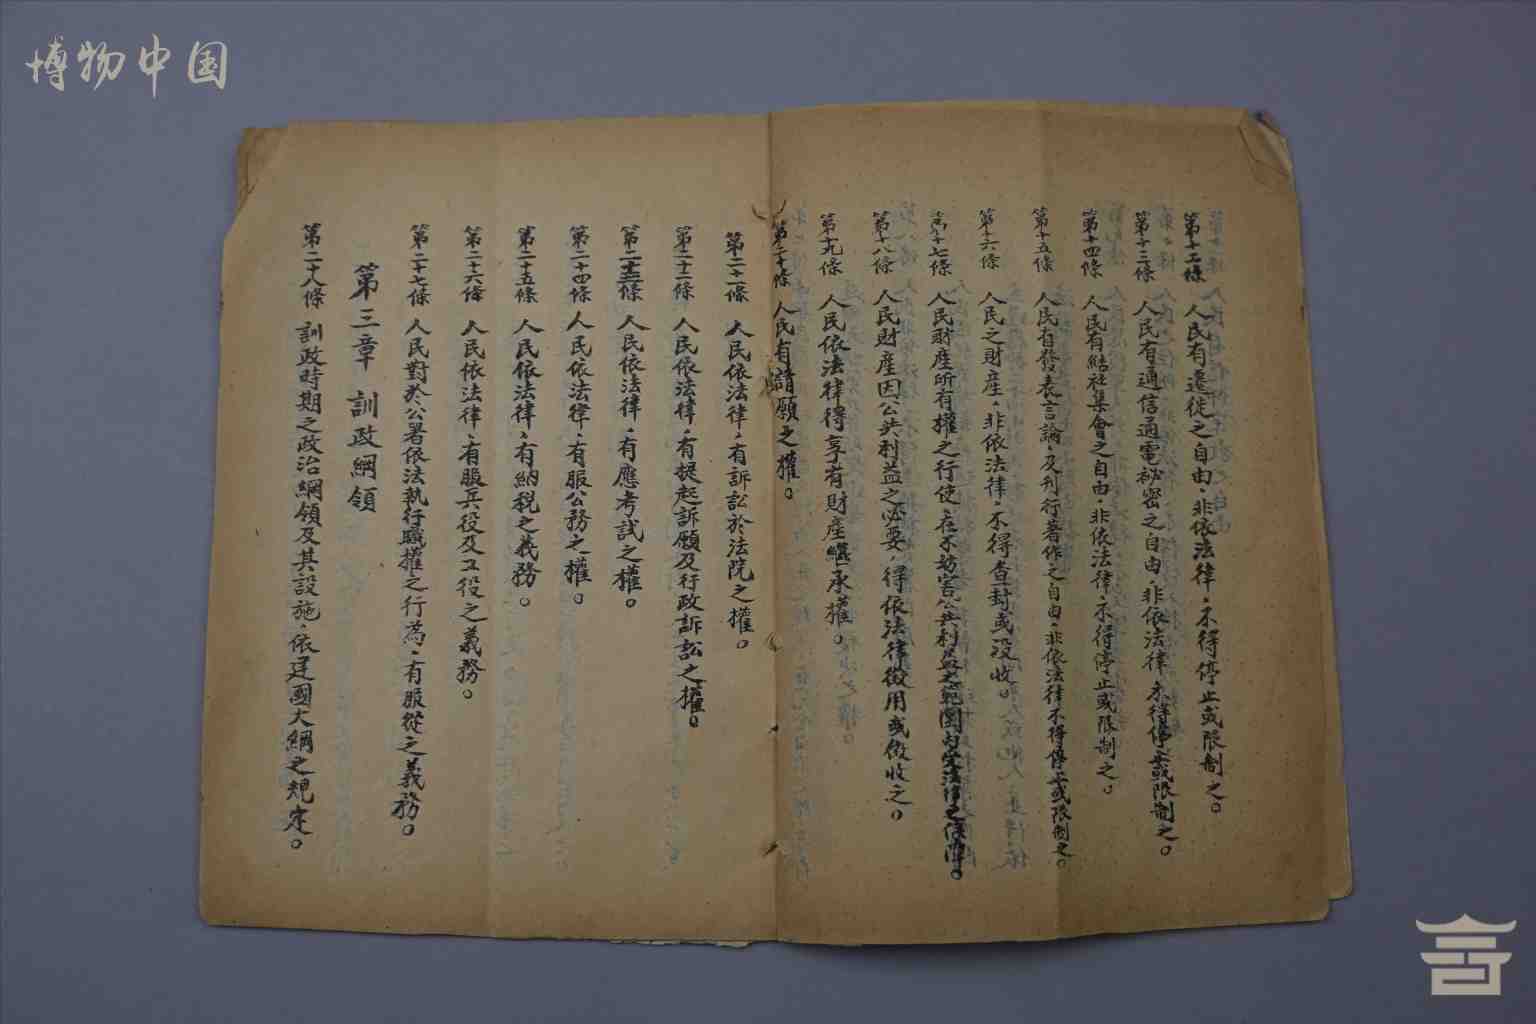 博物中国
第十二條　人民有遷徙之自由，非依法律，不得停止或限制之。
第十三條　人民有通信通電秘密之自由，非依法律不得停止或限制之。
第十四條　人民有結社集會之自由，非依法律，不得停止或限制之。
第十五條　人民有發表言論，及刋行著作之自由，非依法律不得停止或限制之。
第十六條　人民之財產，非依法律，不得查封或没收。
第十七條　人民財產所有權之行使，在不妨害公共利益之範圍内受法律之保障。
第十八條　人民財產因公共利益之必要，得依法律徵用或徵收之。
第十九條　人民依法律得享有財產繼承權。
第二十條　人民有請願之權。
第二十一條　人民依法律，有訴訟於法院之權。
第二十二條　人民依法律，有提起訴願及行政訴訟之權。
第二十三條　人民依法律，有應考試之權。
第二十四條　人民依法律，有服公務之權。
第二十五條　人民依法律，有納稅之義務。
第二十六條　人民依法律，有服兵役及工役之義務。
第二十七條　人民對於公署依法執行職權之行為，有服從之義務。
第三章　訓政綱領
第二十八條　訓政時期之政治綱領及其設施，依建國大綱之規定。